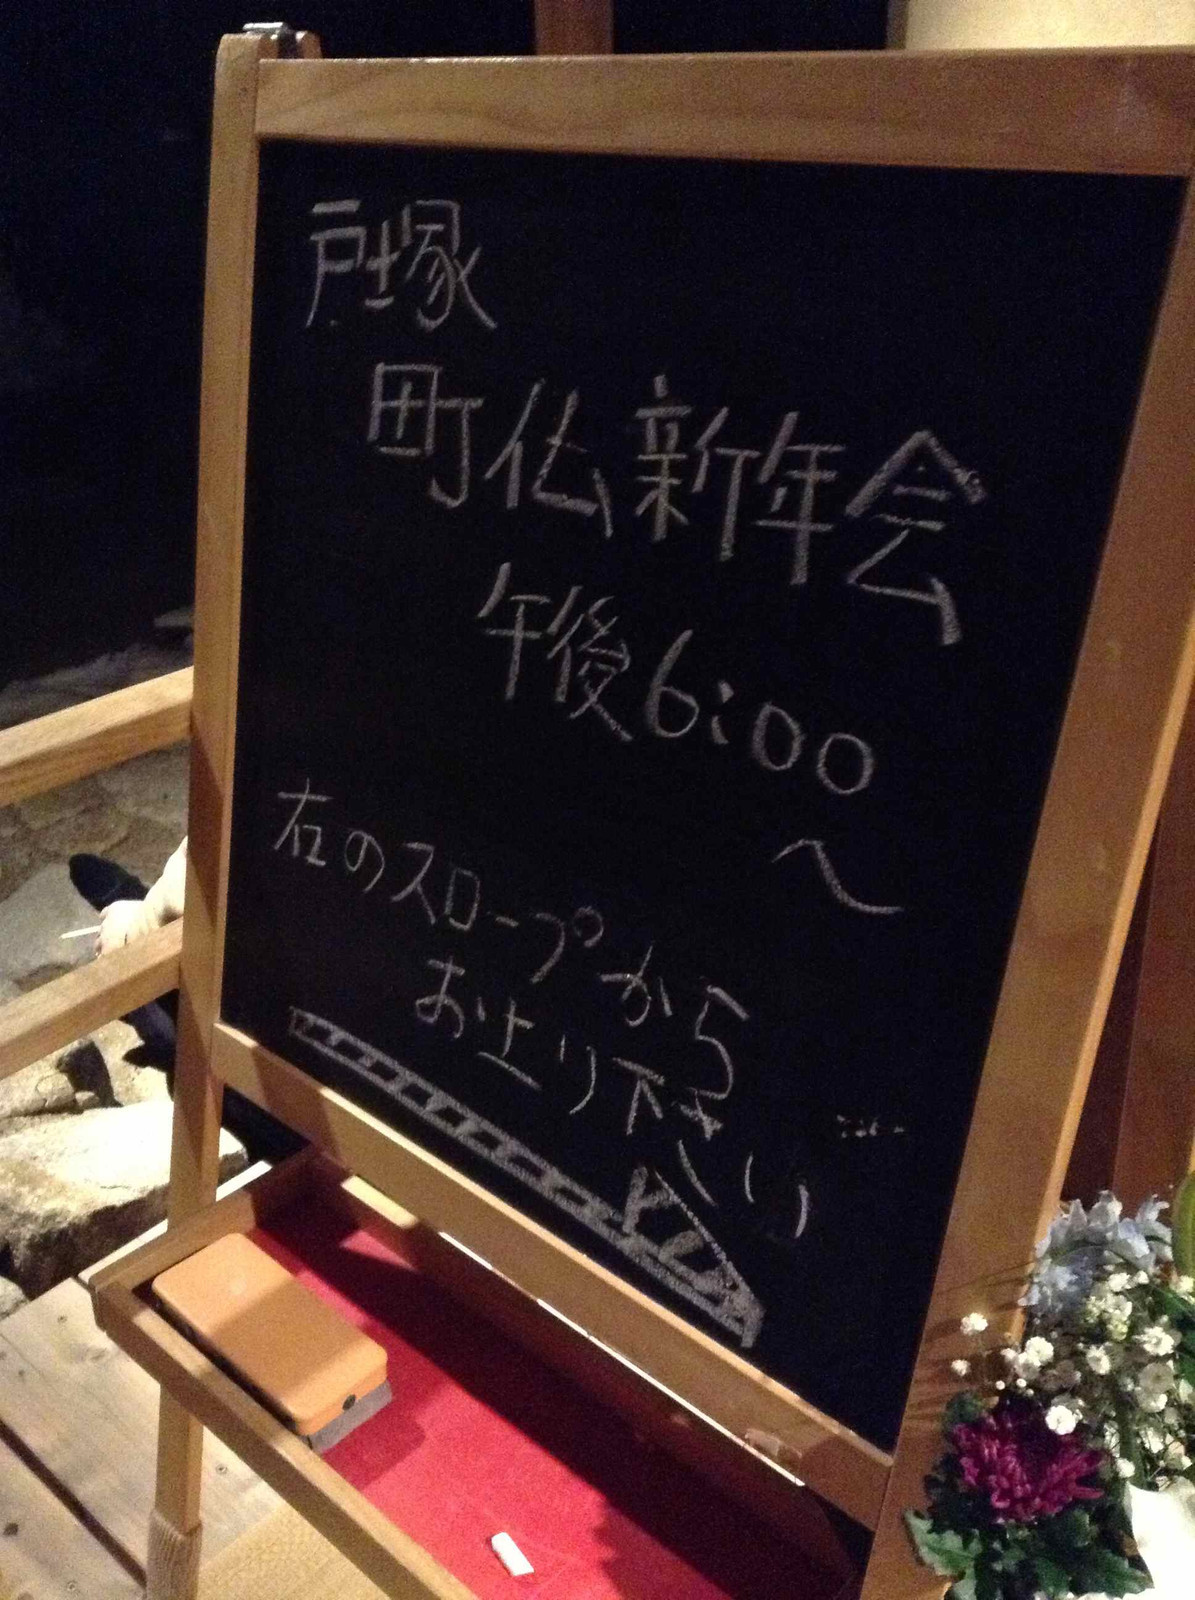 戸塚
町仏新年会
午後6:00
〜
右のスロープから
お上り下さい